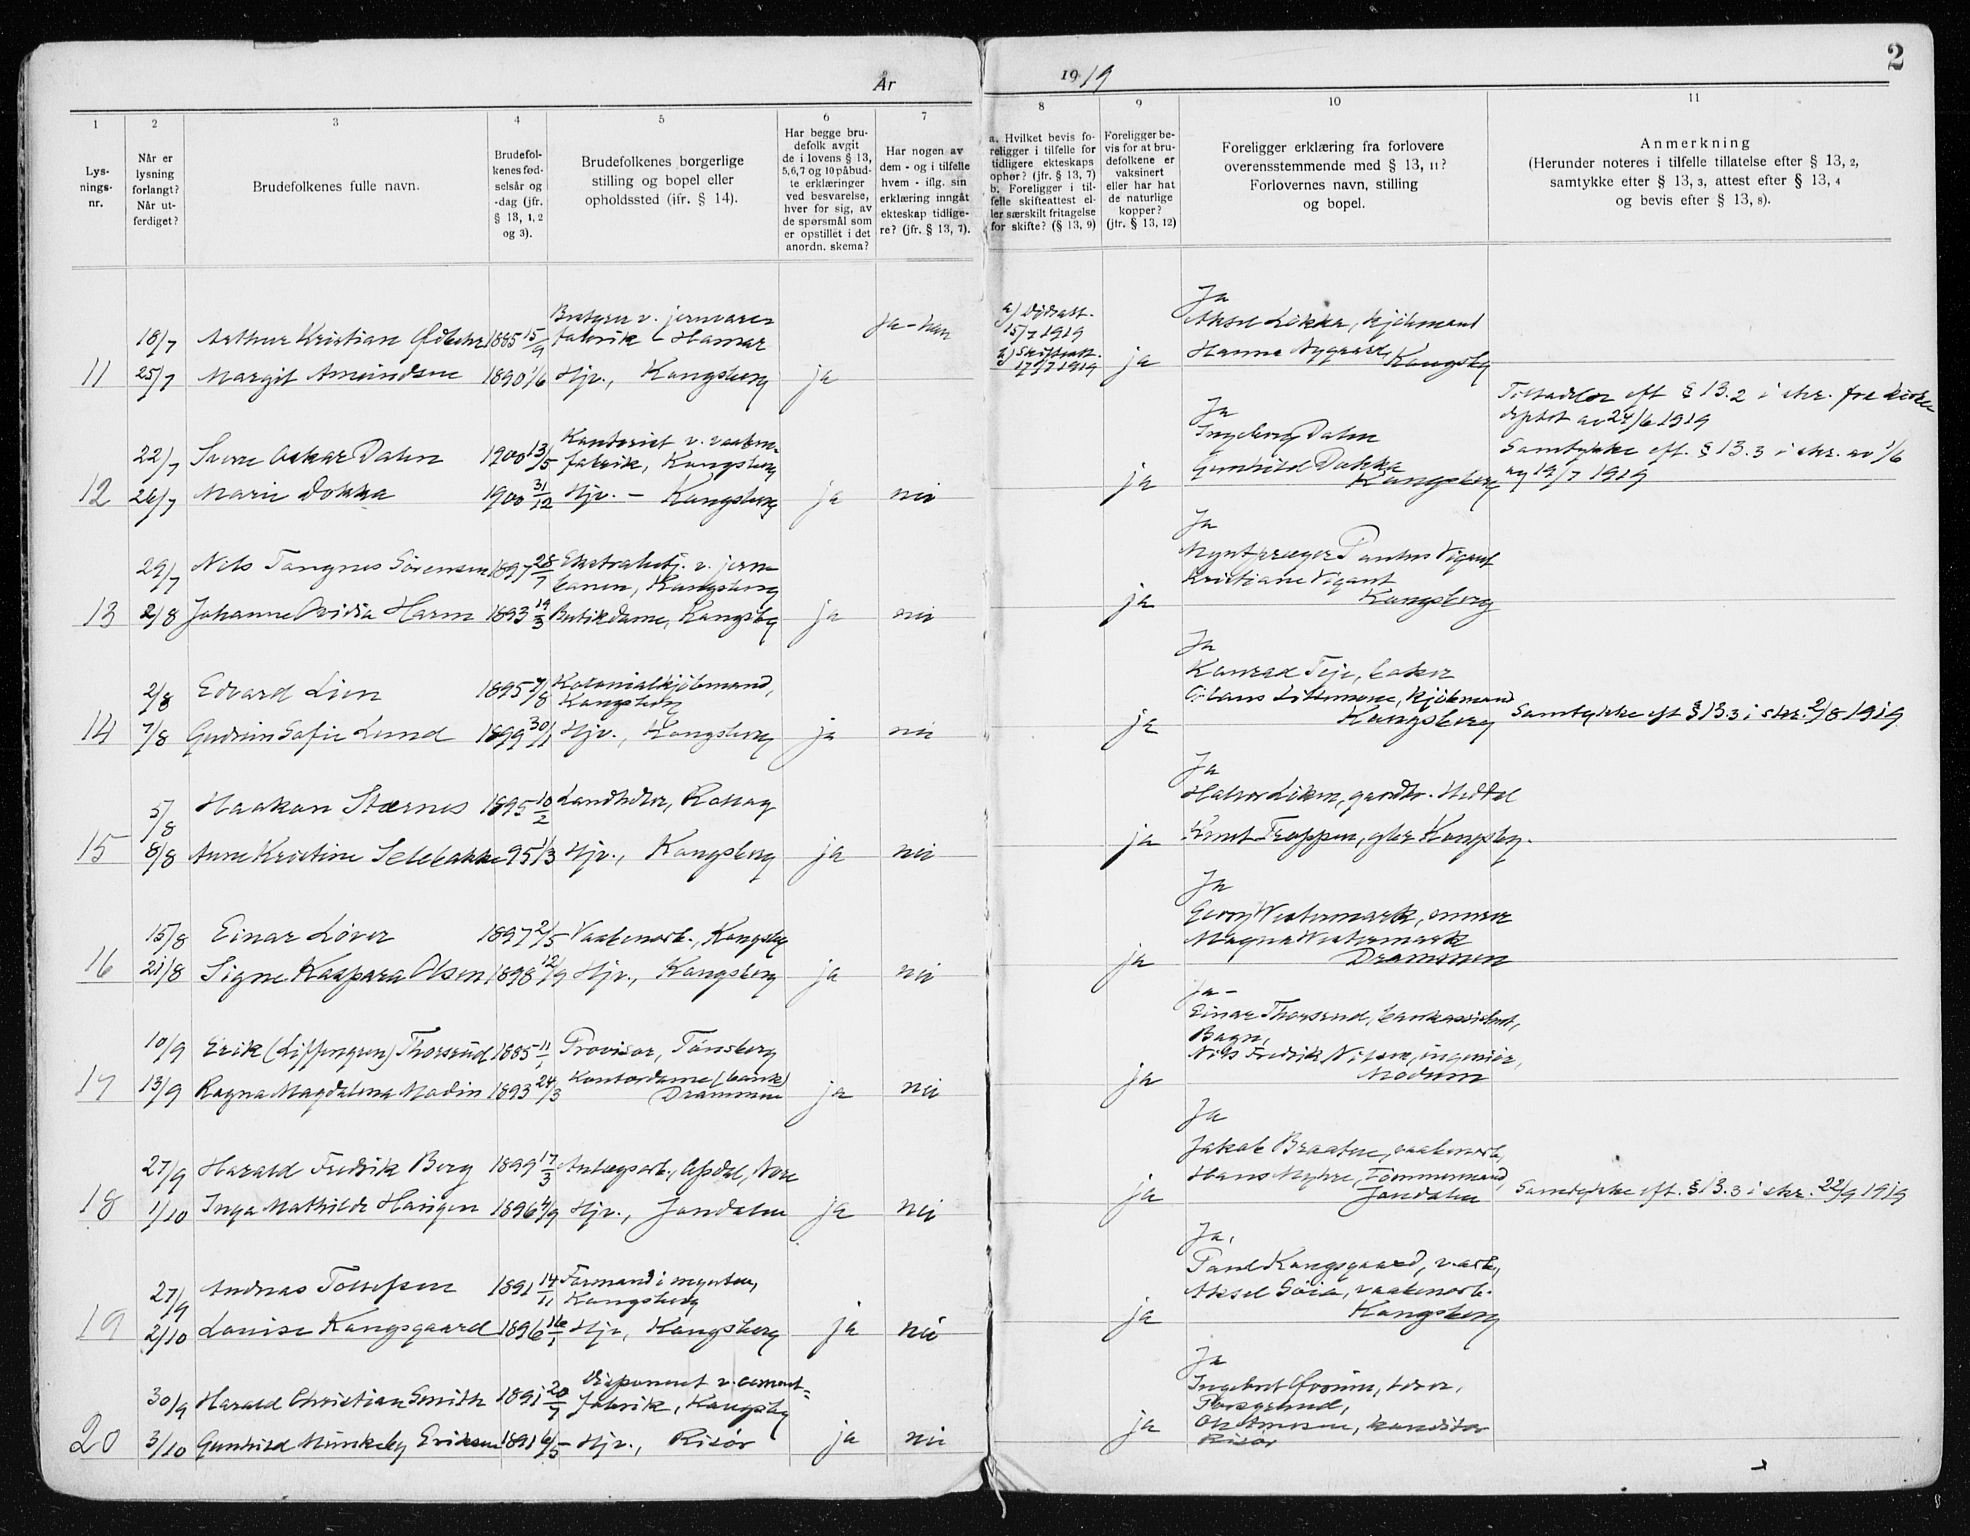 År 1919
2
1 2 3 4 5 6 7 8 9 10 11
Lys-
nings-
nr.
Når er
lysning
forlangt?
Når ut-
ferdiget?
Brudefolkenes fulle navn.
Brudefol-
kenes fød-
selsår og
-dag (jfr.
§ 13, 1, 2
og 3).
Brudefolkenes borgerlige
stilling og bopel eller
opholdssted (jfr. § 14).
Har begge bru-
defolk avgit
de i lovens § 13,
5,6,7 og 10 påbud-
te erklæringer
ved besvarelse,
hver for sig, av
de spørsmål som
er opstillet i det
anordn. skema?
Har nogen av
dem - og i tilfelle
hvem - iflg. sin
erklæring inngåt
ekteskap tidlige-
re? (jfr. § 13, 7).
a. Hvilket bevis fo-
religger i tilfelle for
tidligere ekteskaps
ophør? (jfr. § 13, 7)
b. Foreligger i til-
felle skifteattest el-
ler særskilt fritagelse
for skifte? (§ 13, 9)
Foreligger be-
vis for at bru-
defolkene er
vaksinert
eller har hat
de naturlige
kopper?
(jfr. § 13, 12)
Foreligger erklæring fra forlovere
overensstemmende med § 13, 11?
Forlovernes navn, stilling
og bopel.
Anmerkning
(Herunder noteres i tilfelle tillatelse efter § 13, 2,
samtykke efter § 13, 3, attest efter § 13, 4
og bevis efter § 13, 8).
18/7 Arthur Kristian 1885 15/9 Bestyrer v. jernvare-
fabrik Hamar ja - han
a) Dødsatt.
15/7 1919
b) Skifteatt.
17/7 1919
11 25/7 Margit Amundsen 1890 1/6 Hjv., Kongsberg ja ja
Ja
Aksel Løkka, kjøbmand
Hanna Nygaard, Kongsbg
22/7 Sverre Oskar Dalen 1900 13/5 Kontorist v. vaaben-
fabrik, Kongsberg
12 26/7 Marie Dokka 1900 31/12 Hjv. - Kongsberg ja nei ja
Ja
Ingeborg Dalen
Gunhild Dokka
Kongsberg
Tilladelse eft § 13.2 i skr. fra kirke
deptet av 24/6 1919
Samtykke eft. § 13.3 i skr. av 1/6
og 19/7 1919
29/7 Nils Tangnes Sørensen 1897 28/7 Ekstrabetj. v. jern-
banen, Kongsberg
13 2/8 Johanne Ovidia Harm 1893 19/3 Butikdame, Kongsbg ja nei ja
Ja
Myntpræger Paulus Vigant
Kristiane Vigant
Kongsberg
2/8 Edvard Lien 1895 7/8 Kolonialkjøbmand,
Kongsberg
14 7/8 Gudrun Sofie Lund 1899 30/1 Hjv., Kongsberg ja nei ja
Ja
Konrad Teje, baker
kjøbmand
Kongsberg
Samtykke eft § 13.3 i skr. 2/8 1919
5/8 Haakon Stærnes 1895 10/2 Landhdlr, Rollag
15 8/8 Anne Kristine Selebakke 95 1/3 Hjv., Kongsberg ja nei ja
Ja
Halvor Løken, gaardbr. Heddal
Knut Froppen, gbr Kongsbg.
15/8 Einar Løver 1897 2/5 Vaabenarb., Kongsbg
16 21/8 Signe Kaspara Olsen 1898 12/9 Hjv., Kongsberg ja nei ja
Ja
Georg Westermark, murer
Magna Westermark
Drammen
10/9 Erik (Liffengren) Thorsrud 1885 11/1 Provisor, Tønsberg
17 13/9 Ragna Magdalena Modin 1893 24/3 Kontordame (bank)
Drammen ja nei ja
ja -
Einar Thorsrud, bankassistent,
Bagn,
Nils Fredrik Nilsen, ingeniør,
Modum
27/9 Harald Fredrik Berg 1899 17/3 Anlægsarb., Opdal, Nore
18 1/10 Inga Mathilde Haugen 1896 4/9 Hjv., Jondalen ja nei ja
Ja
Jakob Braaten, vaabenarb.,
Hans Myhre, Tømmermand,
Jondalen
Samtykke eft. § 13.3 i skr. 22/9 1919
27/9 Andreas Tollefsen 1891 14/11 Formand i mynten,
Kongsberg
19 2/10 Louise Kongsgaard 1896 16/1 Hjv, Kongsberg ja nei ja
Ja,
Paul Kongsgaard, v.arb.,
Aksel vaabenarb.
Kongsberg
30/9 Harald Christian Smith 1891 20/7 Disponent v. cement-
fabrik, Kongsbg
20 3/10 Gunhild Munkeby Eriksen 1891 6/5 - Hjv., Risør ja nei ja
Ja
Ingebret
Porsgrund,
konditor
Risør